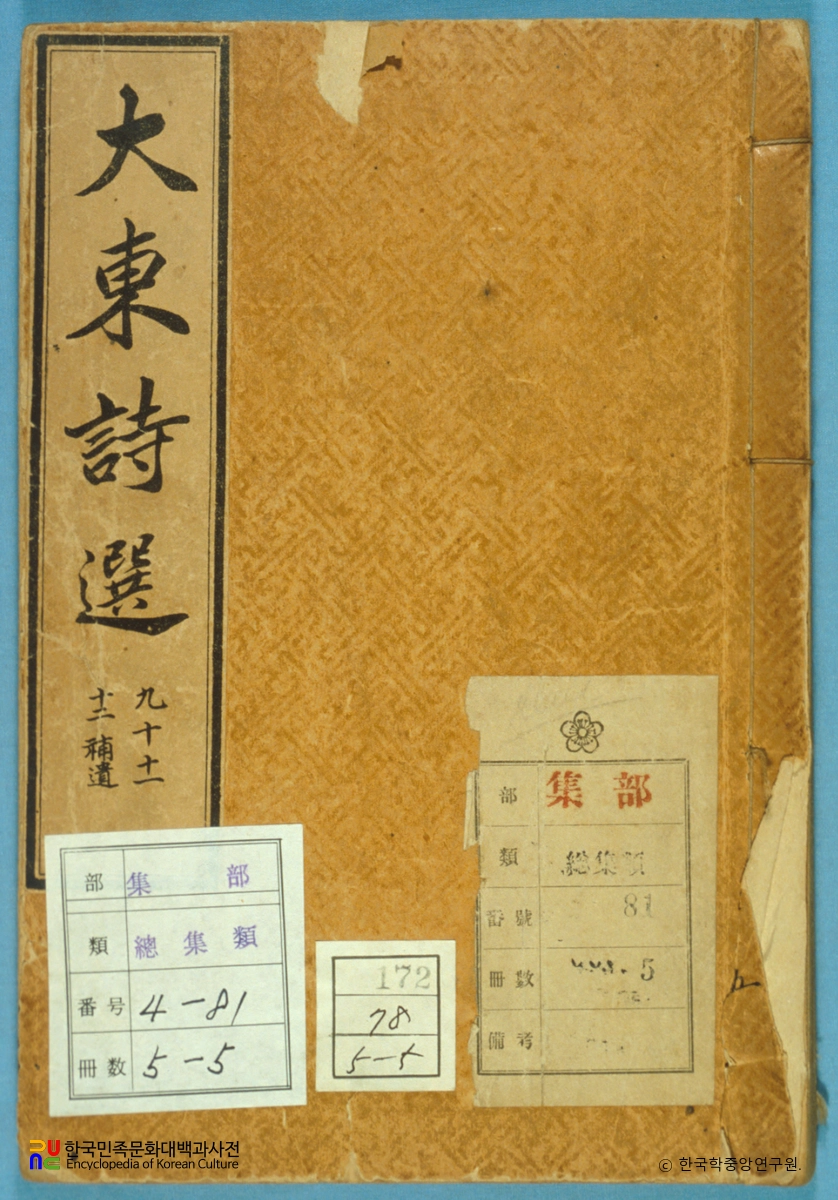 大東詩選
九十十一
十二補遺
部 集部
類 總集類
番号 4-81
冊数 5-5
172
78
5-5
部 集部
類 総集類
番號 81
冊數 5
備考
한국민족문화대백과사전
Encyclopedia of Korean Culture
© 한국학중앙연구원.